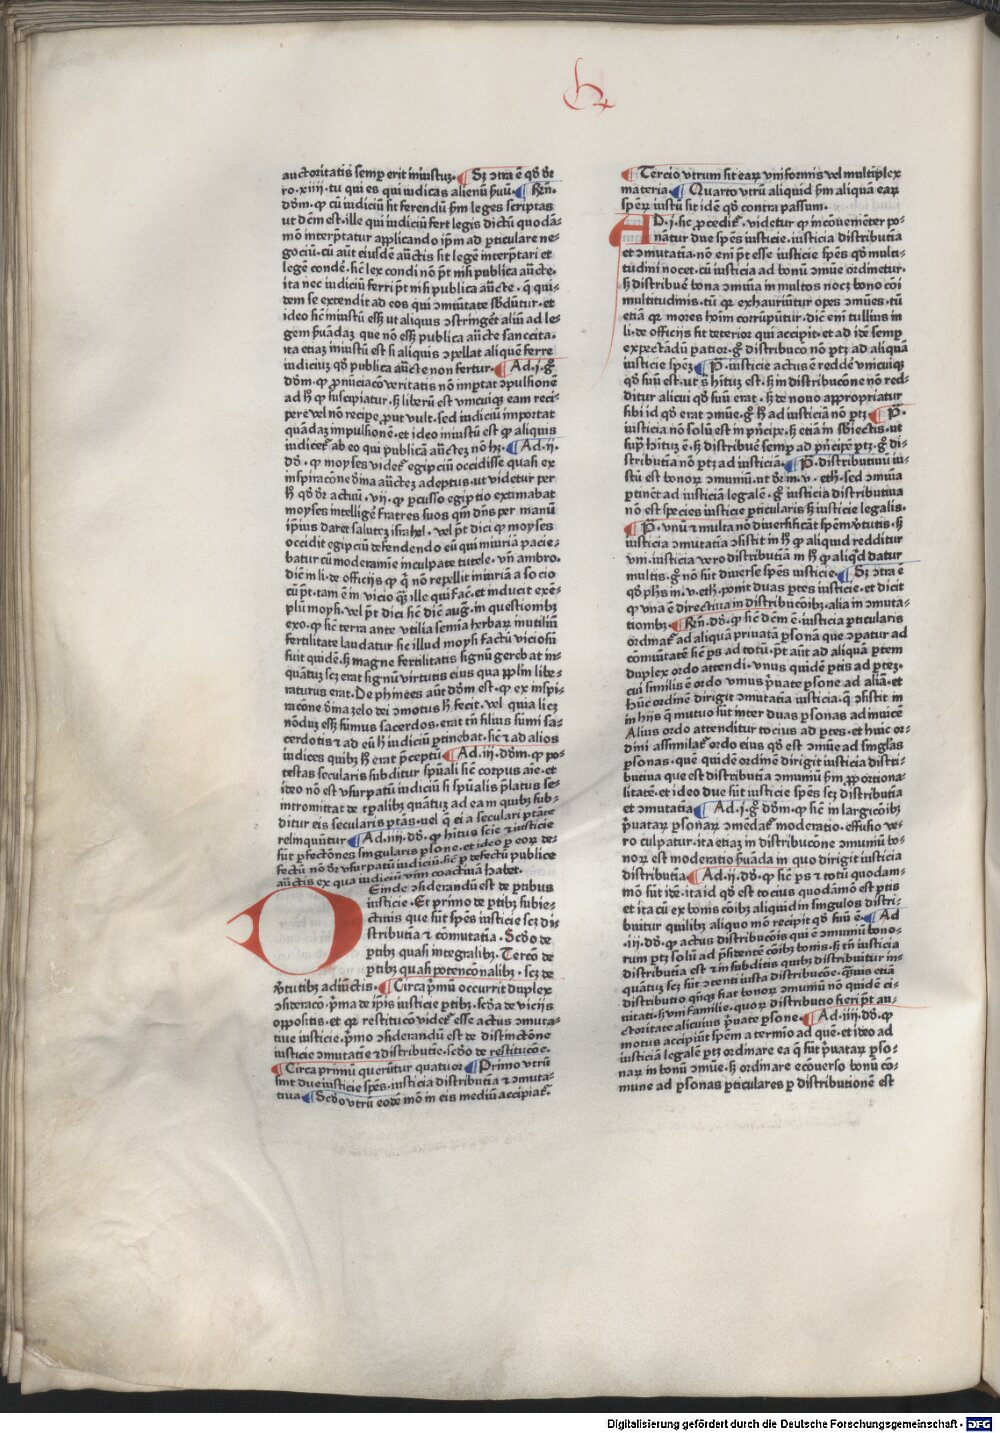 auctoritatis semp̲ erit iniustuꝫ. Sꝫ ↄtra ē qd̓ dr̄
ro·xiiii·tu qui es qui iudicas alienū ẜuū. Rn̄.
dd̓m·ꝙ cū iudiciū sit ferendū ẜm leges scriptas
ut dc̄m est·ille qui iudiciū fert legis dictū quodā-
mō interp̄tatur applicando ip̄m ad p̲ticulare ne-
gociū·cū aūt eiusdē au̅ctis sit legē interp̄tari et
legē condē·sic̄ lex condi nō pt̄ nisi publica au̅cte·
ita nec iudiciū ferri pt̄ nisi publica au̅cte·q̄ qui-
dem se extendit ad eos qui ↄmūitate sb̓dūtur·et
ideo sic̄ iniustū eẜꝫ ut aliquis ↄstringēt aliū ad le-
gem ẜuādaꝫ que nō eẜꝫ publica au̅cte sanccita·
ita etiaꝫ iniustū est si aliquis ↄpellat aliquē ferre
iudiciuꝫ qd̓ publica au̅cte non fertur. Ad·i·gͦ
dd̓m·ꝙ p̲nūciaco̅ veritatis nō imp̲tat ↄpulsionē
ad hͦ ꝙ suscipiatur·ꝫ liberū est vnicuiqꝫ eam reci-
pere vel nō recipe·p̲ut vult·sed iudiciū importat
quādaꝫ impulsionē·et ideo iniustū est ꝙ aliquis
iudicet᷑ ab eo qui publicā au̅cteꝫ nō hꝫ. Ad·ii·
dd̓·ꝙ moyses videt᷑ egipciū occidisse quasi ex
inspiracōne di̅na au̅cteꝫ adeptus·ut videtur per
hͦ qd̓ dr̄ actuū·vii·ꝙ p̲cusso egiptio extimabat
moyses intelligē fratres suos qm̄ dn̄s per manū
ip̄ius daret saluteꝫ israhel·vel pt̄ dici ꝙ moyses
occidit egipciū defendendo eū qui iniuriā pacie-
batur cū moderamie inculpate tutele·vn̄ ambro·
dic̄ in li·de officijs ꝙ q̓ nō repellit iniuriā a socio
cū pt̄·tam ē in vicio qͣꝫ ille qui fac̄·et inducit exē-
plū moysi·vel pt̄ dici sic̄ dic̄ aug̓·in questionibꝫ
exo·ꝙ sic̄ terra ante vtilia semīa herbaꝝ mutiliū
fertilitate laudatur sic̄ illud moysi factū viciosū
fuit quidē·ꝫ magne fertilitatis signū gerebat in-
quātuꝫ scꝫ erat signū virtutis eius qua ppl̄m libe-
raturus erat·De phinees aūt dd̓m est·ꝙ ex inspi-
racōne di̅na zelo dei ↄmotus hͦ fecit·vel quia licꝫ
nōduꝫ eẜꝫ sūmus sacerdos·erat tn̄ filius sūmi sa-
cerdotis ⁊ ad eū hͦ iudiciū p̲tinebat·sic̄ ⁊ ad alios
iudices quibꝫ hͦ erat p̄ceptū. Ad·iii·dd̓m·ꝙ po-
testas secularis subditur spūali sic̄ corpus aīe·et
ideo nō est vsurpatū iudiciū si spūalis p̄latus se-
intromittat de tp̲alibꝫ quātuꝫ ad ea in quibꝫ sub-
ditur eis secularis ptās·uel q̄ ei a seculari ptāte
relinquūtur. Ad·iiii·dd̓·ꝙ hitus scie ⁊ iusticie
sūt p̲fectōnes singularis p̲sone·et ideo p̲ eoꝝ de-
fectū nō dr̄ vsurpatū iudiciū·sic̄ p̲ defectū publice
au̅ctis ex qua iudiciū vim coactiuā habet.
DEinde ↄsiderandū est de p̲tibus
iusticie·Et primo de p̲tibꝫ subie-
ctiuis que sūt spēs iusticie scꝫ di-
stributia̅ ⁊ cōmutatia·Scd̓o de
p̲tibꝫ quasi integralibꝫ·Tercō de
p̲tibꝫ quasi potencōnalibꝫ·scꝫ de
v̓tutibꝫ adiūctis. Circa p̓mū occurrit duplex
ↄsideracō·p̓ma de ip̄is iusticie p̲tibꝫ·scd̓a de viciis
oppositis·et qꝛ restitucō videt᷑ esse actus ↄmuta-
tiue iusticie·p̓mo ↄsiderandū est de distinctōne
iusticie ↄmutatie ⁊ distributie·scd̓o de restitucōe.
Circa primū querūtur quatuor. Primo vtrū
sint due iusticie spēs·iusticia distributia̅ ⁊ ↄmuta-
tiua. Scd̓o vtrū eodē mō in eis mediū accipiat᷑.
Tercio vtrum sit eaꝝ vniformis vel multiplex
materia. Quarto vtrū aliquid ẜm aliquā eaꝝ
spēꝝ iustū sit idē qd̓ contra passum.
AD·i·sic p̲cedit᷑·videtur ꝙ incōueniēter po-
nātur due spēs iusticie·iusticia distributīa
et ↄmutatia·nō eni̅ pt̄ esse iusticie spēs qd̓ multi-
tudini nocet·cū iusticia ad bonū ↄmūe ordinetur·
ꝫ distribuē bona ↄmūia in multos nocꝫ bono cōi
multitudinis·tū qꝛ exhauriūtur opes ↄmūes·tū
etiā qꝛ mores hoīm corrūpūtur·dic̄ eni̅ tullius in
li·de officijs fit deterior qui accipit·et ad idē semp̲
expectādū p̲atior·gͦ distribucō nō p̲tꝫ ad aliquā
iusticie spēꝫ. P̄·iusticie actus ē reddē vnicuiqꝫ
qd̓ suū est·ut s̄ hitūꝫ est·ꝫ in distribucōne nō red-
ditur alicui qd̓ suū erat·ꝫ de nouo appropriatur
sibi id qd̓ erat ↄmūe·gͦ hͦ ad iusticiā nō p̲tꝫ. P̄·
iusticia nō solū est in p̓ncipe·ꝫ etiā in sb̓iectis·ut
supͣ hitūꝫ ē·ꝫ distribuē semp̲ ad p̓ncipē p̲tꝫ·gͦ di-
stributia̅ nō p̲tꝫ ad iusticiā. P̄·distributiuū iu-
stū est bonoꝝ ↄmuniū·ut dr̄ in·v·eth·sed ↄmūia
p̲tinēt ad iusticiā legalē·gͦ iusticia distributiua
nō est species iusticie p̲ticularis ꝫ iusticie legalis·
P̄·vnū ⁊ multa nō diuersificāt spēm v̓tutis·ꝫ
iusticia ↄmutatia ↄsistit in hͦ ꝙ aliquid redditur
vni·iusticia vero distributia̅ in hͦ ꝙ aliqd̓ datur
multis·gͦ nō sūt diuerse spēs iusticie. Sꝫ ↄtra ē
qd̓ ph̄s in·v·eth·ponit duas p̲tes iusticie·et dicit
ꝙ vna ē directiua in distribucōibꝫ·alia in ↄmuta-
tionibꝫ. Rn̄·dd̓·ꝙ sic̄ dc̄m ē·iusticia p̲ticularis
ordinat᷑ ad aliquā priuatā p̲sonā que ↄp̲atur ad
cōmūitatē sic̄ p̲s ad totū·pt̄ aūt ad aliquā p̲tem
duplex ordo attendi·vnus quidē p̲tis ad p̲teꝫ·
cui similis ē ordo vnius p̓uate p̲sone ad aliā·et
hūc ordinē dirigit ↄmutatia iusticia·q̄ ↄsistit in
in hiis q̄ mutuo fiūt inter duas p̲sonas ad inuicē
Alius ordo attenditur tocius ad p̲tes·et huic or-
dini assimilat᷑ ordo eius qd̓ est ↄmūe ad singl̄as
p̲sonas·quē quidē ordinē dirigit iusticia distri-
butiua que est distributia̅ ↄmuniū ẜm p̲portiona-
litatē·et ideo due sūt iusticie spēs scꝫ distributia̅
et ↄmutatia. Ad·i·gͦ dd̓m·ꝙ sic̄ in largicōibꝫ
p̓uataꝝ p̲sonaꝝ ↄmēdat᷑ moderatio·effusio ve-
ro culpatur·ita etiaꝫ in distribucōne ↄmuniū bo-
noꝝ est moderatio ẜuāda in quo dirigit iusticia
distributia. Ad·ii·dd̓·ꝙ sic̄ p̲s ⁊ totū quodam-
mō sūt idē·ita id qd̓ est tocius quodāmō est p̲tis
et ita cū ex bonis cōibꝫ aliquid in singulos distri-
buitur quilibꝫ aliquo mō recipit qd̓ suū ē. Ad
·iii·dd̓·ꝙ actus distribucōis qui ē ↄmuniū bono-
rum p̲tꝫ solū ad p̓sidentē cōibꝫ bonis·ꝫ tn̄ iusticia
distributia est ⁊ in subditis quibꝫ distribuitur in-
quātuꝫ scꝫ sūt ↄtenti iusta distribucōe·qͣmuis etiā
distributio qn̄qꝫ fiat bonoꝝ ↄmuniū nō quidē ci-
uitati·ꝫ vni familie·quoꝝ distributio fieri pt̄ au-
ctoritate alicuius p̓uate p̲sone. Ad·iiii·dd̓·ꝙ
motus accipiūt spēm a termino ad quē·et ideo ad
iusticiā legalē p̲tꝫ ordinare ea q̄ sūt p̓uataꝝ p̲so-
naꝝ in bonū ↄmūe·ꝫ ordinare ecōuerso bonū cō-
mune ad p̲sonas p̲ticulares p̲ distributionē est
Digitalisierung gefördert durch die Deutsche Forschungsgemeinschaft - DFG